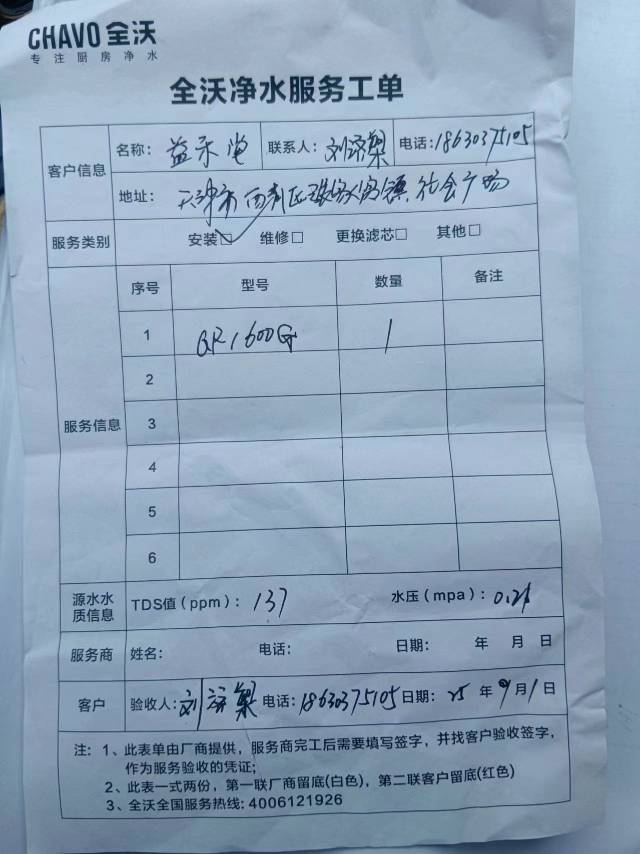 CHAVO 全沃
专注厨房净水
全沃净水服务工单
客户信息 名称: 益禾堂 联系人: 刘 电话: 18630375105
地址: 天津市西青区张家窝镇 社会广场
服务类别 安装☑ 维修□ 更换滤芯□ 其他□
服务信息 序号 型号 数量 备注
1 QR1600G 1
2
3
4
5
6
源水水质信息 TDS值(ppm): 137 水压(mpa): 0.21
服务商 姓名: 电话: 日期: 年 月 日
客户 验收人: 刘 电话: 18630375105 日期: 25 年 9 月 1 日
注: 1、此表单由厂商提供,服务商完工后需要填写签字,并找客户验收签字,
作为服务验收的凭证;
2、此表一式两份,第一联厂商留底(白色),第二联客户留底(红色)
3、全沃全国服务热线: 4006121926